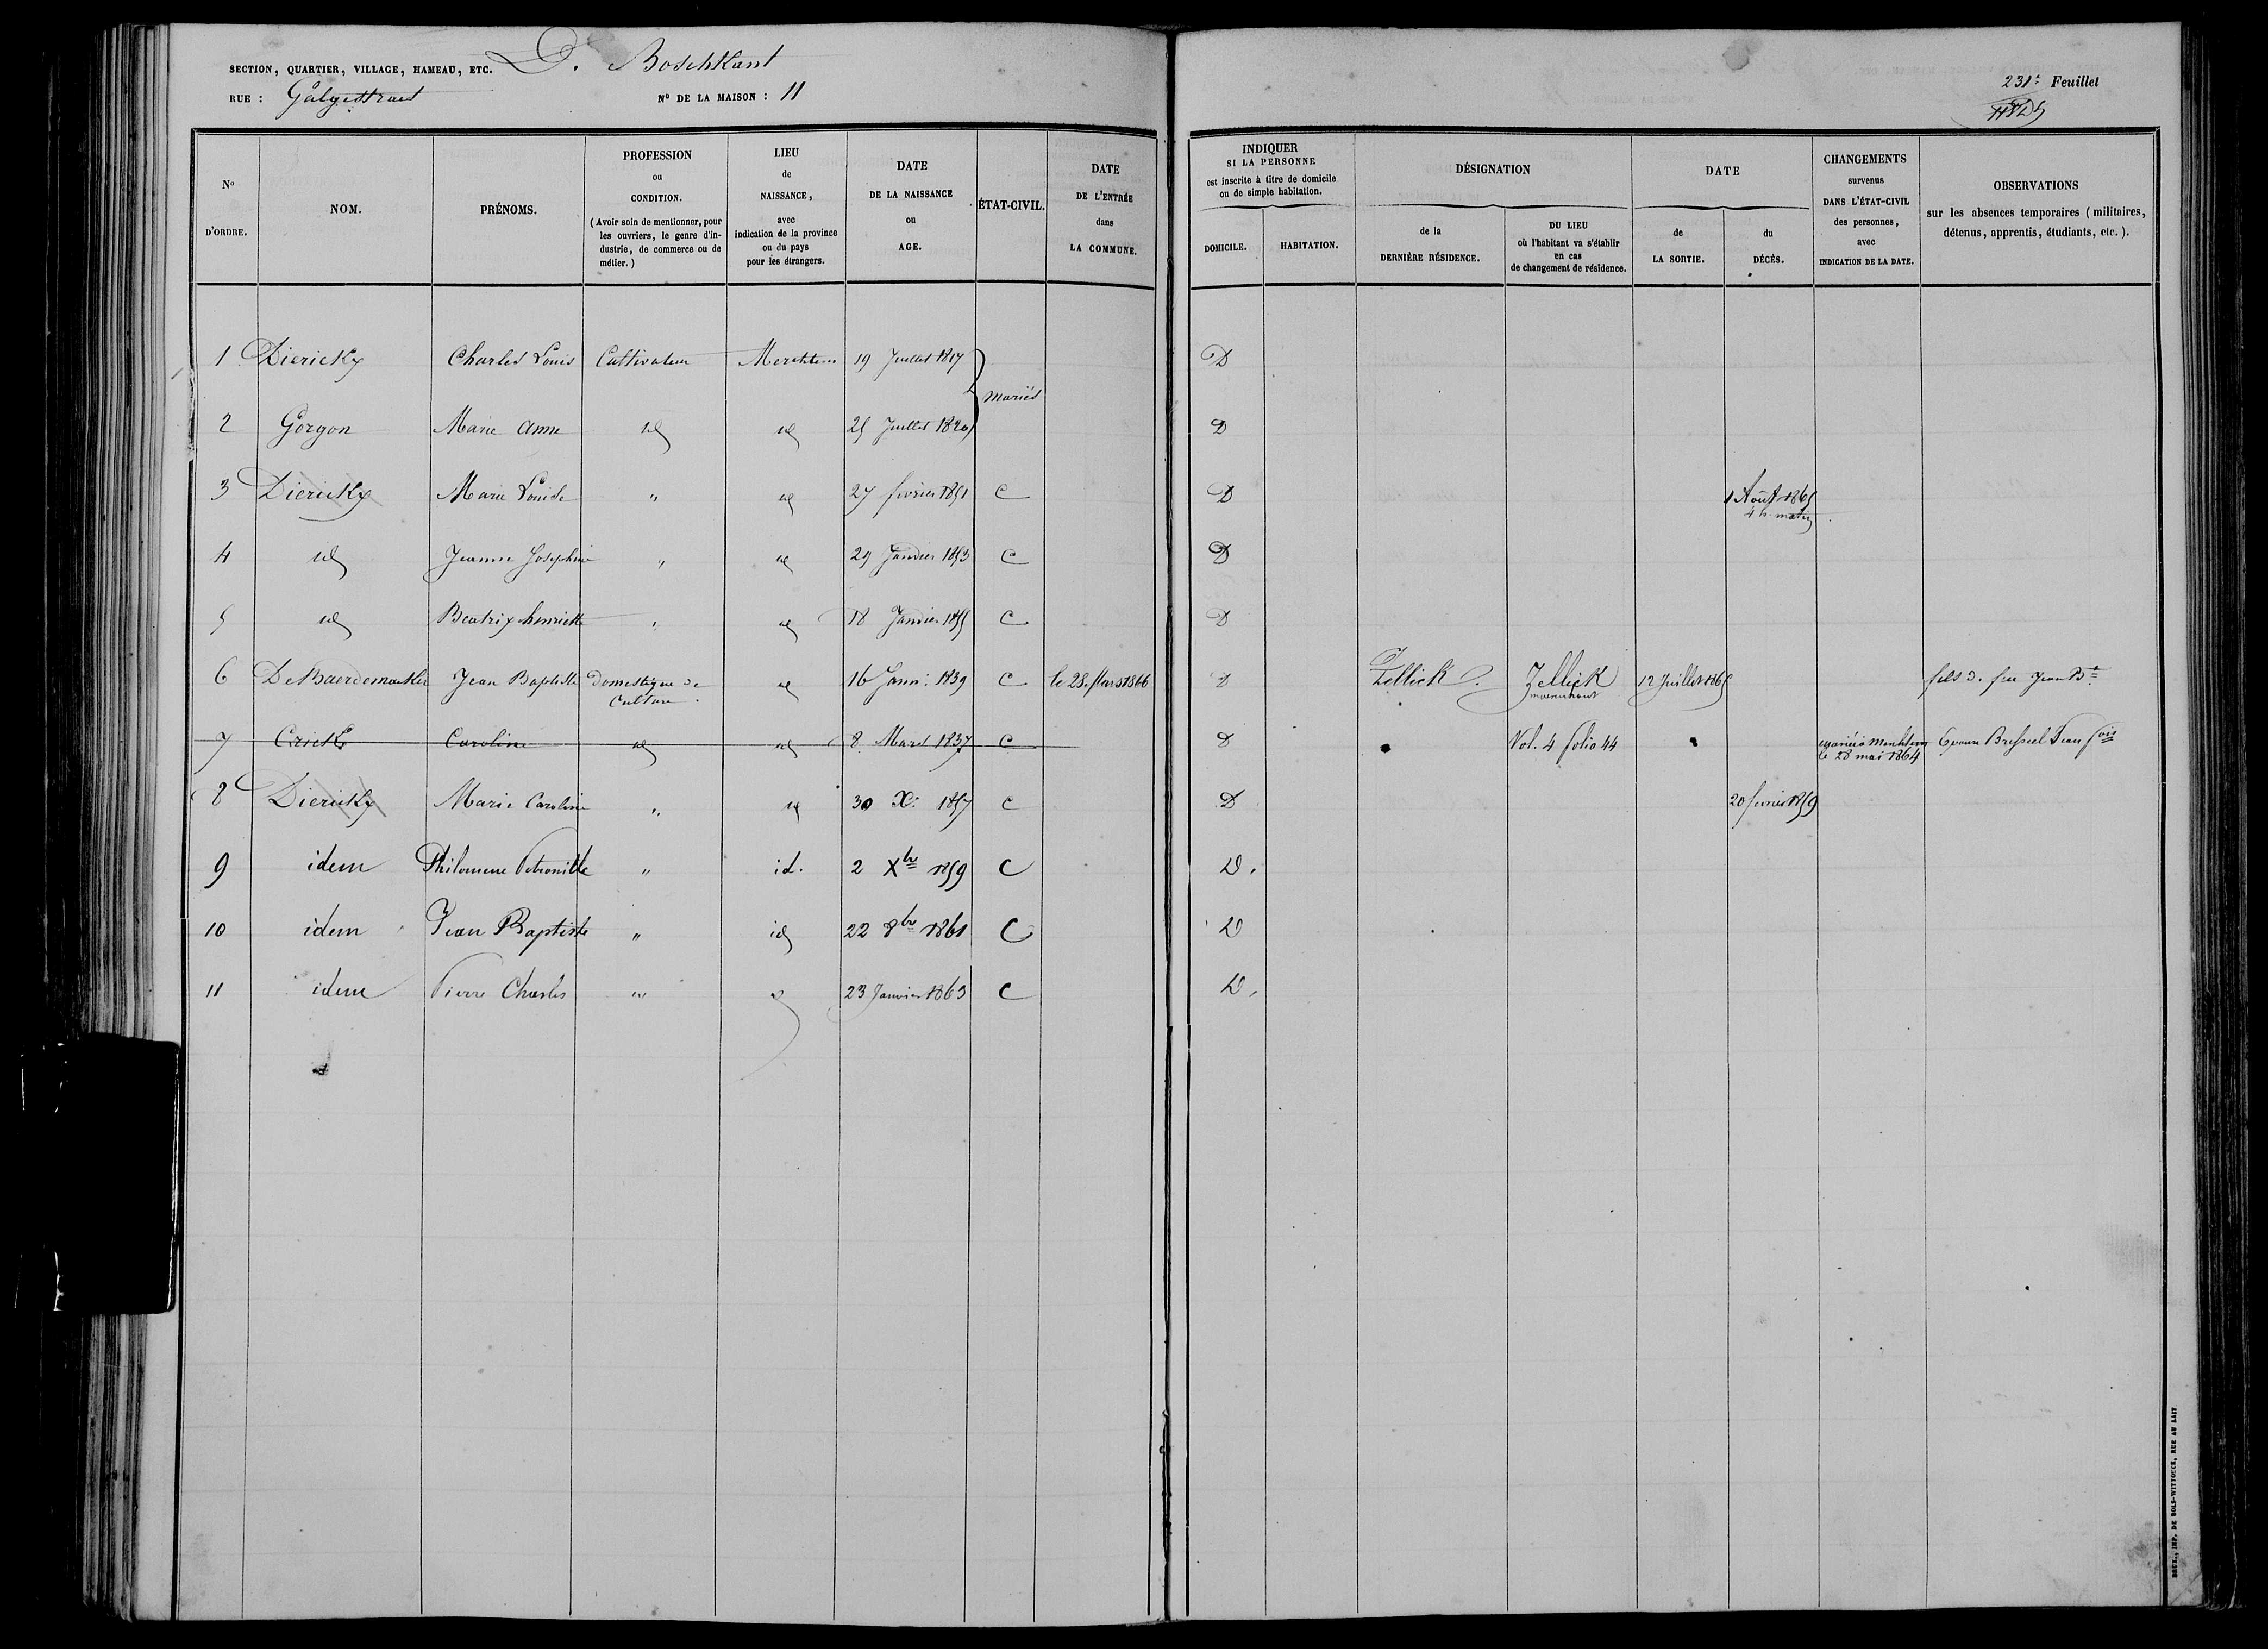 SECTION, QUARTIER, VILLAGE, HAMEAU, ETC. D. Boschkant
RUE : Galgestraat N° DE LA MAISON : 11
231e Feuillet
N° D'ORDRE.
NOM.
PRÉNOMS.
PROFESSION
ou
CONDITION.
(Avoir soin de mentionner, pour
les ouvriers, le genre d'in-
dustrie, de commerce ou de
métier.)
LIEU
de
NAISSANCE,
avec
indication de la province
ou du pays
pour les étrangers.
DATE
DE LA NAISSANCE
ou
AGE.
ÉTAT-CIVIL.
DATE
DE L'ENTRÉE
dans
LA COMMUNE.
INDIQUER
SI LA PERSONNE
est inscrite à titre de domicile
ou de simple habitation.
DOMICILE.
HABITATION.
DÉSIGNATION
de la
DERNIÈRE RÉSIDENCE.
DU LIEU
où l'habitant va s'établir
en cas
de changement de résidence.
DATE
de
LA SORTIE.
du
DÉCÈS.
CHANGEMENTS
survenus
DANS L'ÉTAT-CIVIL
des personnes,
avec
INDICATION DE LA DATE.
OBSERVATIONS
sur les absences temporaires (militaires,
détenus, apprentis, étudiants, etc.).
1 Dierickx Charles Louis Cultivateur Merchtem 19 Juillet 1817 D
mariés
2 Gorgon Marie Anne id id 25 Juillet 1820 D
3 Dierickx Marie Louise " id 27 fevrier 1851 C D 1 Août 1865
4 h. matin
4 id Jeanne Josephine " id 29 Janvier 1853 C D
5 id Beatrix henriette " id 18 Janvier 1855 C D
6 De Baerdemaeker Jean Baptiste Domestique de id 16 Janv: 1839 C le 28. Mars 1866 D Zellick. Zellick 12 Juillet 1865 fils d. feu Jean Bte
culture.
7 Crick Caroline id id 8 Mars 1837 C D Vol. 4 folio 44 mariée à Merchtem Epoux Bresseel Jean fois
le 28 mai 1864
8 Dierickx Marie Caroline " id 30 X: 1857 C D 20 fevrier 1859
9 idem Philomene Petronille " id. 2 Xbre 1859 C D.
10 idem Jean Baptiste " id 22 8bre 1861 C D
11 idem Pierre Charles " id 23 Janvier 1863 C D.
BRUX., IMP. DE BOLS-WITTOUCK, RUE AU LAIT